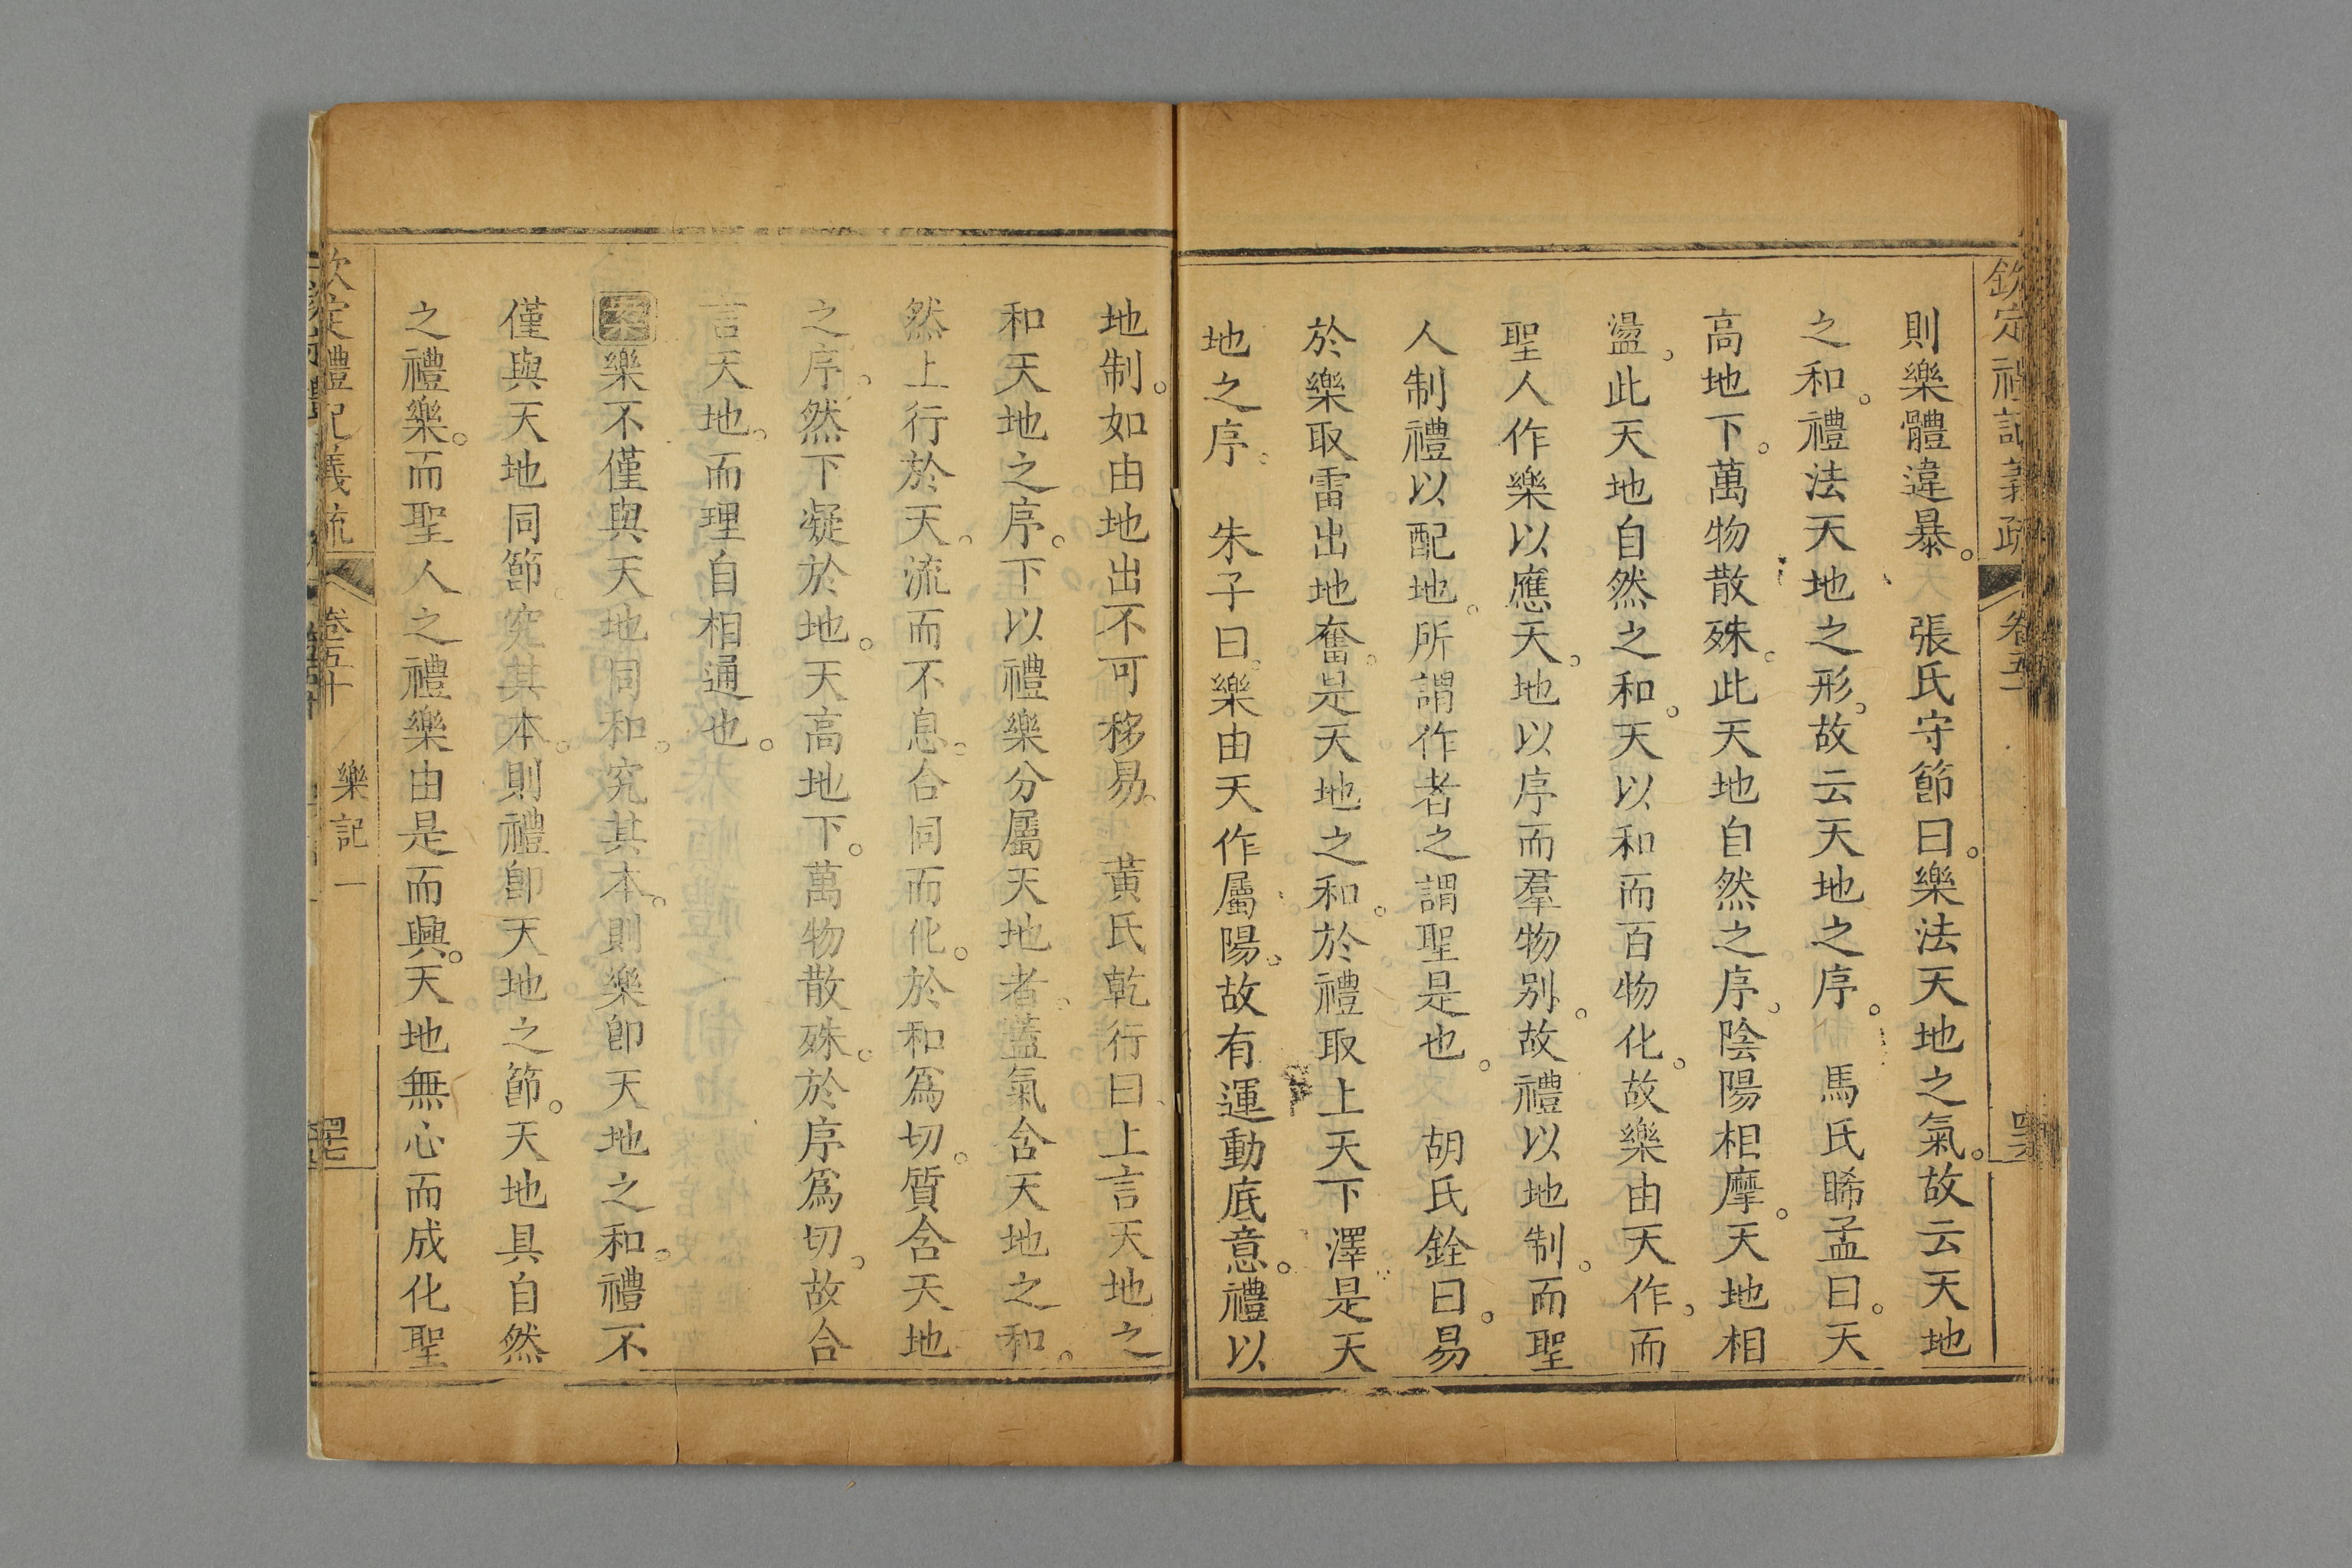 欽定禮記義疏 卷五
則樂體違暴。 張氏守節曰。樂法天地之氣。故云天地
之和。禮法天地之形。故云天地之序。 馬氏睎孟曰。天
高地下。萬物散殊。此天地自然之序。陰陽相摩。天地相
盪。此天地自然之和。天以和而百物化。故樂由天作。而
聖人作樂以應天。地以序而羣物別。故禮以地制。而聖
人制禮以配地。所謂作者之謂聖是也。 胡氏銓曰。易
於樂取雷出地奮。是天地之和。於禮取上天下澤。是天
地之序。 朱子曰。樂由天作屬陽。故有運動底意。禮以
地制。如由地出不可移易。 黃氏乾行曰。上言天地之
和。天地之序。下以禮樂分屬天地者。蓋氣含天地之和。
然上行於天。流而不息。合同而化。於和爲切。質含天地
之序。然下凝於地。天高地下。萬物散殊。於序爲切。故合
言天地。而理自相通也。
案樂不僅與天地同和。究其本。則樂卽天地之和。禮不
僅與天地同節。究其本。則禮卽天地之節。天地具自然
之禮樂。而聖人之禮樂由是而興。天地無心而成化聖
欽定禮記義疏 卷五十 樂記一